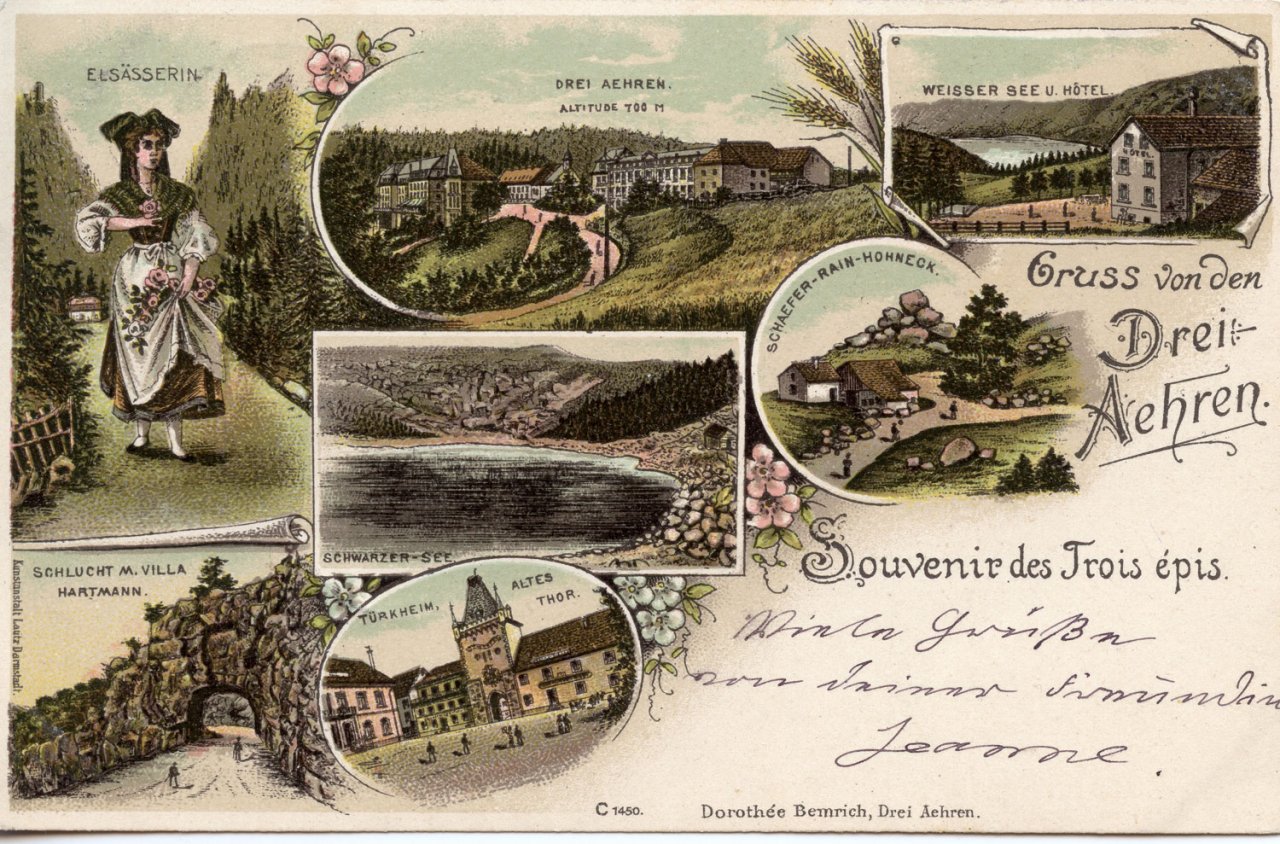 ELSÄSSERIN
DREI AEHREN.
ALTITUDE 700 M
WEISSER SEE U. HÔTEL.
HÔTEL
SCHAEFER-RAIN-HOHNECK.
Gruss von den
Drei-
Aehren.
SCHWARZER-SEE
Souvenir des Trois épis.
SCHLUCHT M. VILLA
HARTMANN.
TÜRKHEIM, ALTES
THOR.
Viele Grüße
von deiner Freundin
Jeanne.
Kunstanstalt Lautz Darmstadt.
C 1450.
Dorothée Bemrich, Drei Aehren.